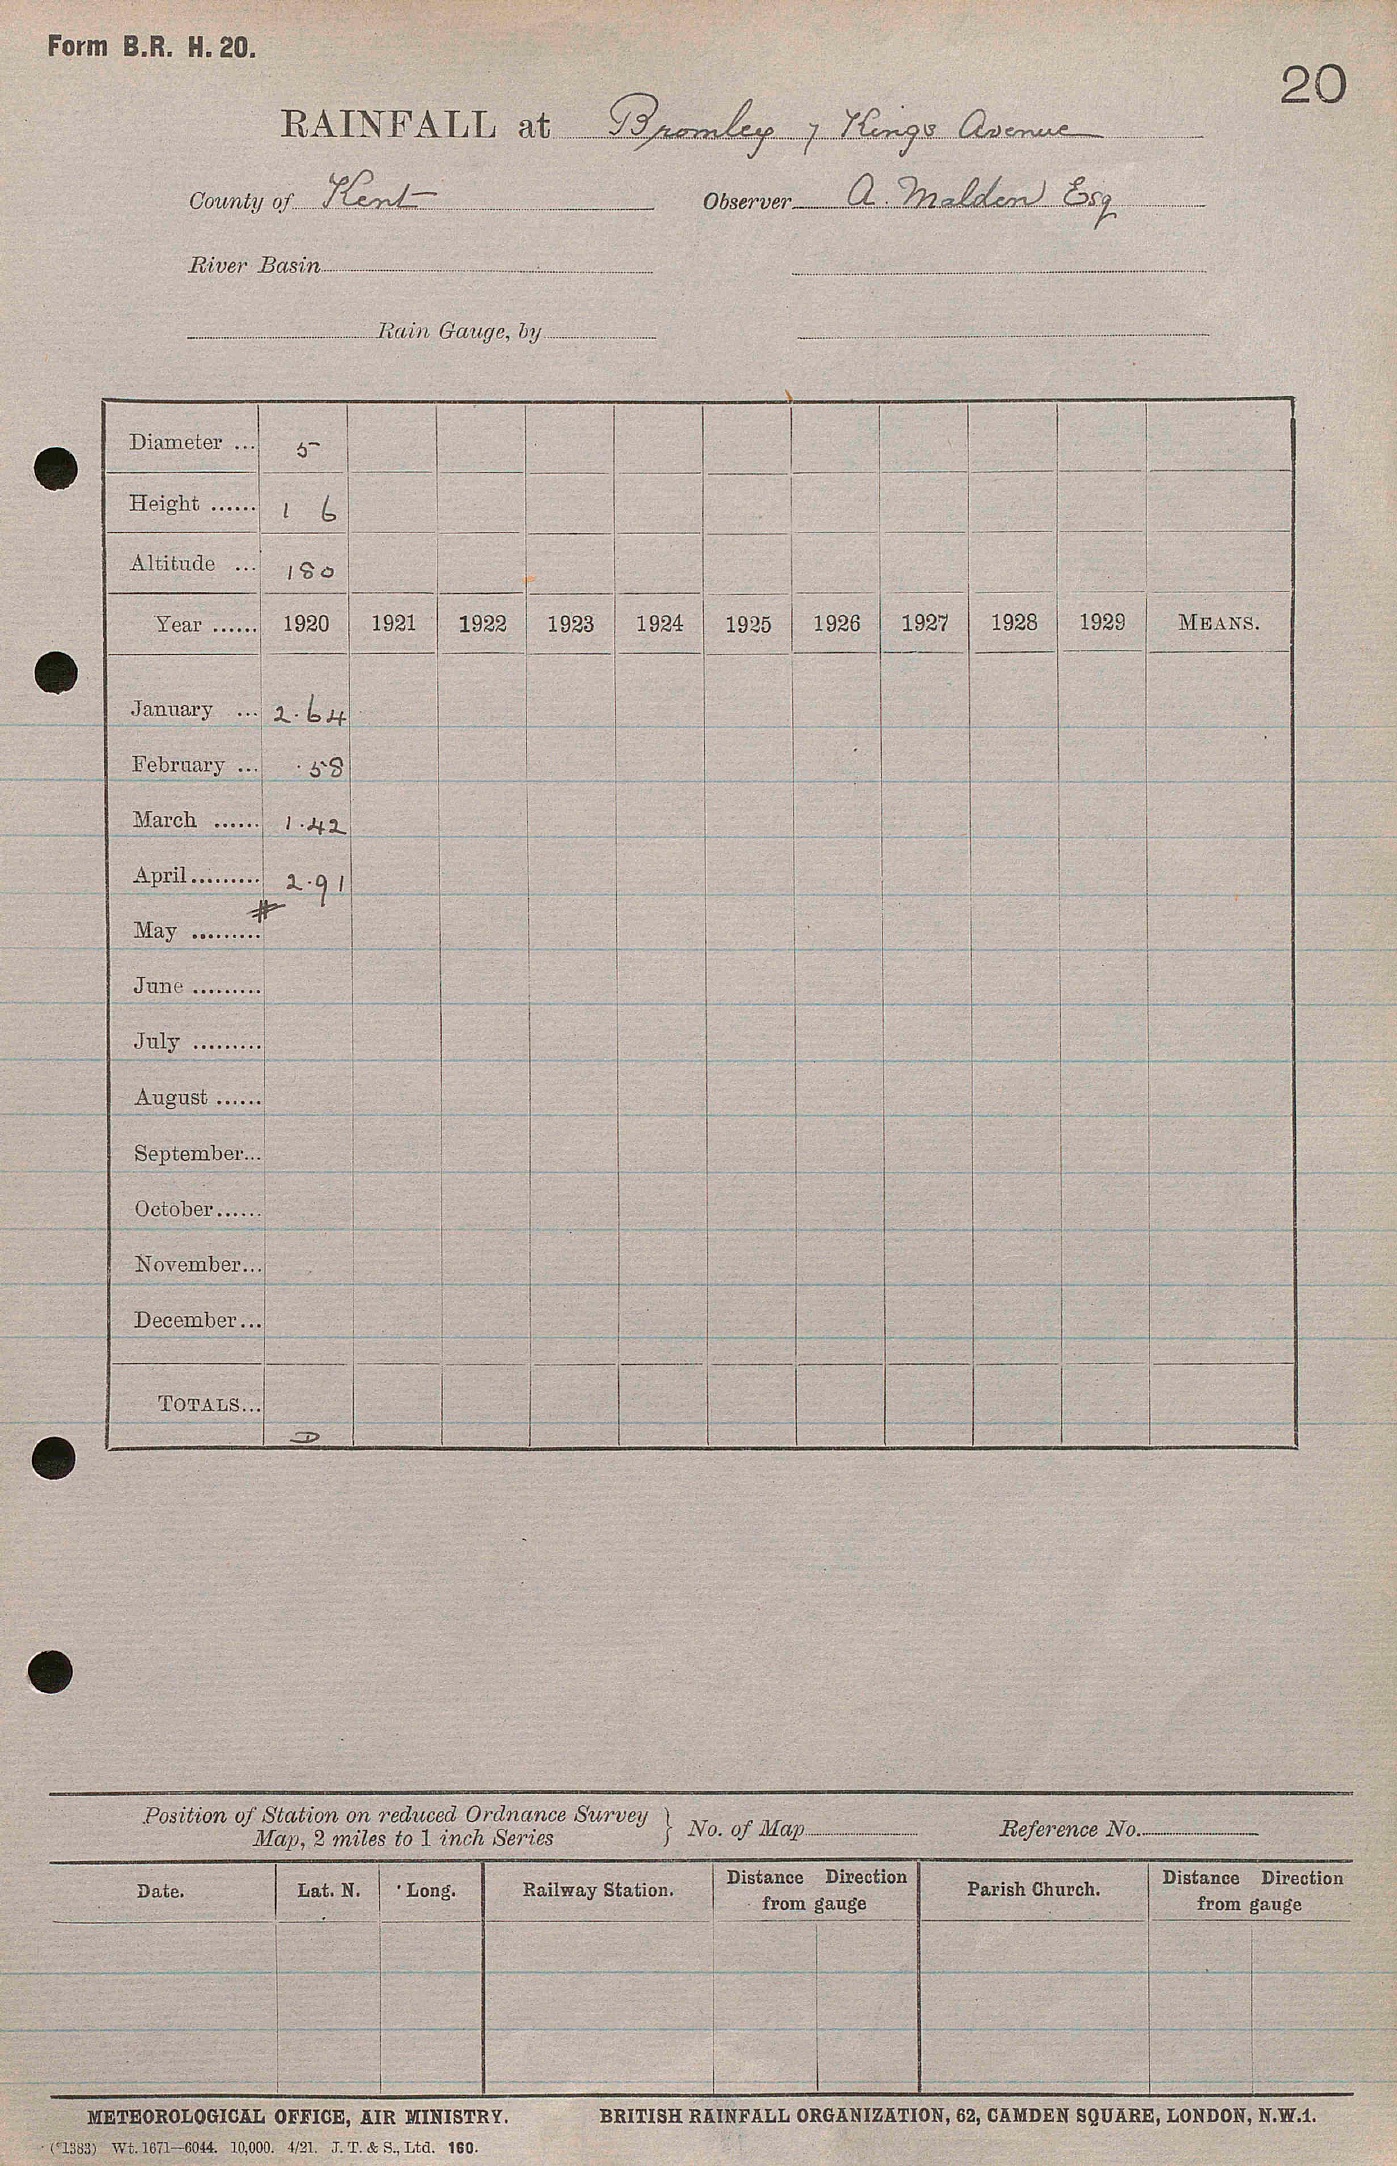 Form B.R. H. 20.
20
RAINFALL at Bromley 7 Kings Avenue
County of Kent Observer A. Malden Esq
River Basin
Rain Gauge, by
Diameter ... 5
Height ...... 1 6
Altitude ... 180
Year ...... 1920 1921 1922 1923 1924 1925 1926 1927 1928 1929 MEANS.
January ... 2.64
February ... .58
March ...... 1.42
April ......... 2.91
#
May .........
June .........
July .........
August ......
September...
October......
November...
December...
TOTALS...
D
Position of Station on reduced Ordnance Survey
Map, 2 miles to 1 inch Series } No. of Map Reference No.
Date. Lat. N. Long. Railway Station. Distance Direction from gauge Parish Church. Distance Direction from gauge
METEOROLOGICAL OFFICE, AIR MINISTRY. BRITISH RAINFALL ORGANIZATION, 62, CAMDEN SQUARE, LONDON, N.W.1.
(*1383) Wt. 1671—6044. 10,000. 4/21. J. T. & S., Ltd. 160.